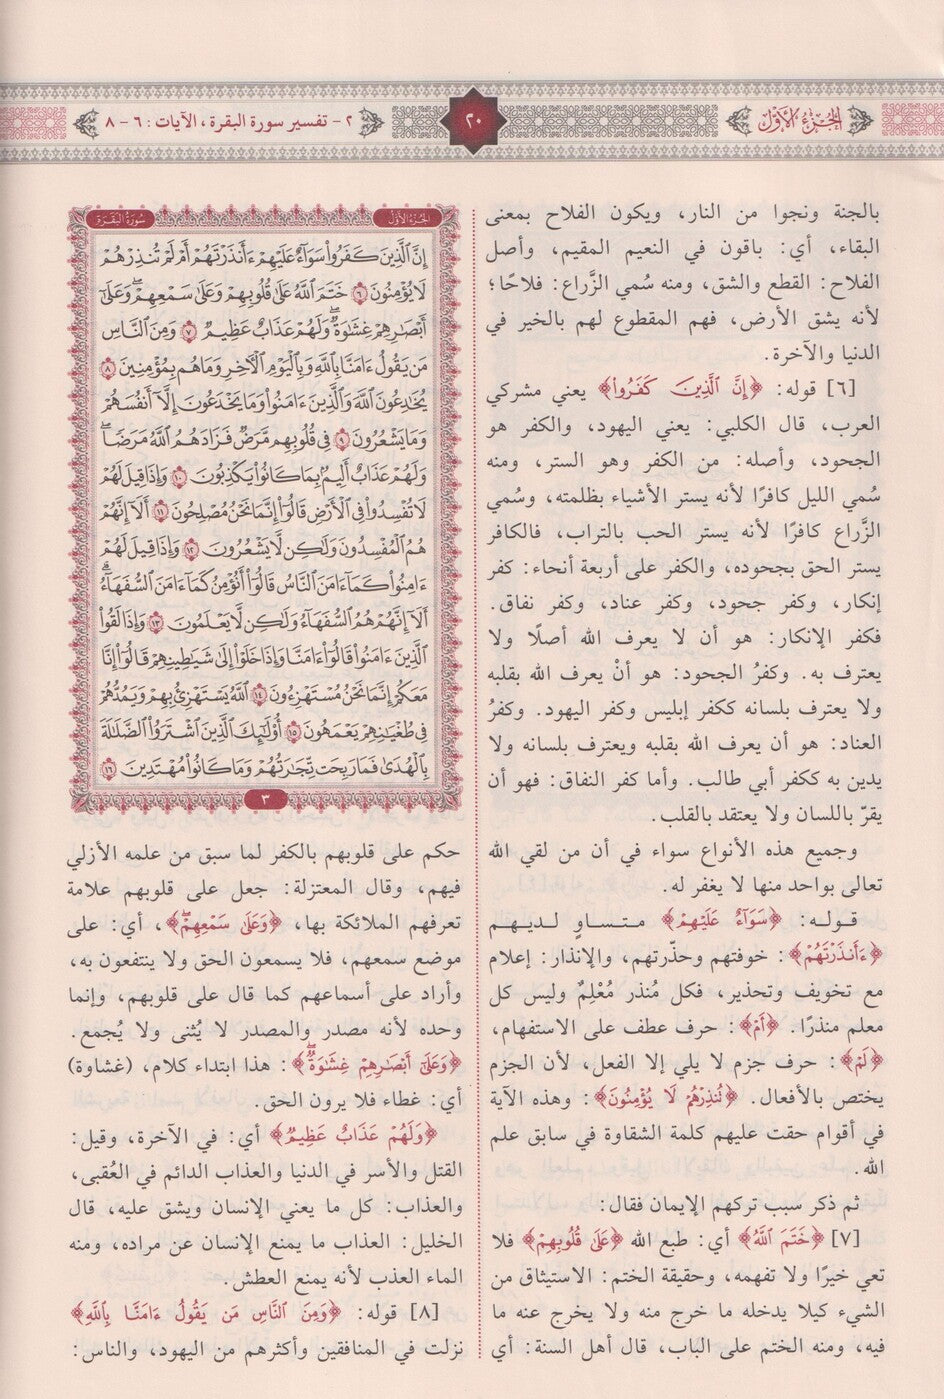 الجزء الأول
٢٠
٢- تفسير سورة البقرة، الآيات: ٦ - ٨
بالجنة ونجوا من النار، ويكون الفلاح بمعنى
البقاء، أي: باقون في النعيم المقيم، وأصل
الفلاح: القطع والشق، ومنه سُمي الزَّراع: فلاحًا؛
لأنه يشق الأرض، فهم المقطوع لهم بالخير في
الدنيا والآخرة.
[٦] قوله: ﴿إِنَّ ٱلَّذِينَ كَفَرُوا۟﴾ يعني مشركي
العرب، قال الكلبي: يعني اليهود، والكفر هو
الجحود، وأصله: من الكفر وهو الستر، ومنه
سُمي الليل كافرًا لأنه يستر الأشياء بظلمته، وسُمي
الزَّراع كافرًا لأنه يستر الحب بالتراب، فالكافر
يستر الحق بجحوده، والكفر على أربعة أنحاء: كفر
إنكار، وكفر جحود، وكفر عناد، وكفر نفاق.
فكفر الإنكار: هو أن لا يعرف الله أصلًا ولا
يعترف به. وكفرُ الجحود: هو أنْ يعرف الله بقلبه
ولا يعترف بلسانه ككفر إبليس وكفر اليهود. وكفرُ
العناد: هو أن يعرف الله بقلبه ويعترف بلسانه ولا
يدين به ككفر أبي طالب. وأما كفر النفاق: فهو أن
يقرّ باللسان ولا يعتقد بالقلب.
وجميع هذه الأنواع سواء في أن من لقي الله
تعالى بواحد منها لا يغفر له.
قوله: ﴿سَوَآءٌ عَلَيْهِمْ﴾ متساوٍ لديهم
﴿ءَأَنذَرْتَهُمْ﴾: خوفتهم وحذّرتهم، والإنذار: إعلام
مع تخويف وتحذير، فكل مُنذر مُعْلِمٌ وليس كل
معلم منذرًا. ﴿أَمْ﴾: حرف عطف على الاستفهام،
﴿لَمْ﴾: حرف جزم لا يلي إلا الفعل، لأن الجزم
يختص بالأفعال. ﴿تُنذِرْهُمْ لَا يُؤْمِنُونَ﴾: وهذه الآية
في أقوام حقت عليهم كلمة الشقاوة في سابق علم
الله.
ثم ذكر سبب تركهم الإيمان فقال:
[٧] ﴿خَتَمَ ٱللَّهُ﴾ أي: طبع الله ﴿عَلَىٰ قُلُوبِهِمْ﴾ فلا
تعي خيرًا ولا تفهمه، وحقيقة الختم: الاستيثاق من
الشيء كيلا يدخله ما خرج منه ولا يخرج عنه ما
فيه، ومنه الختم على الباب، قال أهل السنة: أي
الجزء الأول
سورة البقرة
إِنَّ ٱلَّذِينَ كَفَرُوا۟ سَوَآءٌ عَلَيْهِمْ ءَأَنذَرْتَهُمْ أَمْ لَمْ تُنذِرْهُمْ
لَا يُؤْمِنُونَ ٦ خَتَمَ ٱللَّهُ عَلَىٰ قُلُوبِهِمْ وَعَلَىٰ سَمْعِهِمْ ۖ وَعَلَىٰٓ
أَبْصَٰرِهِمْ غِشَٰوَةٌ ۖ وَلَهُمْ عَذَابٌ عَظِيمٌ ٧ وَمِنَ ٱلنَّاسِ
مَن يَقُولُ ءَامَنَّا بِٱللَّهِ وَبِٱلْيَوْمِ ٱلْـَٔاخِرِ وَمَا هُم بِمُؤْمِنِينَ ٨
يُخَٰدِعُونَ ٱللَّهَ وَٱلَّذِينَ ءَامَنُوا۟ وَمَا يَخْدَعُونَ إِلَّآ أَنفُسَهُمْ
وَمَا يَشْعُرُونَ ٩ فِى قُلُوبِهِم مَّرَضٌ فَزَادَهُمُ ٱللَّهُ مَرَضًا ۖ
وَلَهُمْ عَذَابٌ أَلِيمٌۢ بِمَا كَانُوا۟ يَكْذِبُونَ ١٠ وَإِذَا قِيلَ لَهُمْ
لَا تُفْسِدُوا۟ فِى ٱلْأَرْضِ قَالُوٓا۟ إِنَّمَا نَحْنُ مُصْلِحُونَ ١١ أَلَآ إِنَّهُمْ
هُمُ ٱلْمُفْسِدُونَ وَلَٰكِن لَّا يَشْعُرُونَ ١٢ وَإِذَا قِيلَ لَهُمْ
ءَامِنُوا۟ كَمَآ ءَامَنَ ٱلنَّاسُ قَالُوٓا۟ أَنُؤْمِنُ كَمَآ ءَامَنَ ٱلسُّفَهَآءُ ۗ
أَلَآ إِنَّهُمْ هُمُ ٱلسُّفَهَآءُ وَلَٰكِن لَّا يَعْلَمُونَ ١٣ وَإِذَا لَقُوا۟
ٱلَّذِينَ ءَامَنُوا۟ قَالُوٓا۟ ءَامَنَّا وَإِذَا خَلَوْا۟ إِلَىٰ شَيَٰطِينِهِمْ قَالُوٓا۟ إِنَّا
مَعَكُمْ إِنَّمَا نَحْنُ مُسْتَهْزِءُونَ ١٤ ٱللَّهُ يَسْتَهْزِئُ بِهِمْ وَيَمُدُّهُمْ
فِى طُغْيَٰنِهِمْ يَعْمَهُونَ ١٥ أُو۟لَٰٓئِكَ ٱلَّذِينَ ٱشْتَرَوُا۟ ٱلضَّلَٰلَةَ
بِٱلْهُدَىٰ فَمَا رَبِحَت تِّجَٰرَتُهُمْ وَمَا كَانُوا۟ مُهْتَدِينَ ١٦
٣
حكم على قلوبهم بالكفر لما سبق من علمه الأزلي
فيهم، وقال المعتزلة: جعل على قلوبهم علامة
تعرفهم الملائكة بها، ﴿وَعَلَىٰ سَمْعِهِمْ ۖ﴾، أي: على
موضع سمعهم، فلا يسمعون الحق ولا ينتفعون به،
وأراد على أسماعهم كما قال على قلوبهم، وإنما
وحده لأنه مصدر والمصدر لا يُثنى ولا يُجمع.
﴿وَعَلَىٰٓ أَبْصَٰرِهِمْ غِشَٰوَةٌ ۖ﴾: هذا ابتداء كلام، (غشاوة)
أي: غطاء فلا يرون الحق.
﴿وَلَهُمْ عَذَابٌ عَظِيمٌ﴾ أي: في الآخرة، وقيل:
القتل والأسر في الدنيا والعذاب الدائم في العُقبى،
والعذاب: كل ما يعني الإنسان ويشق عليه، قال
الخليل: العذاب ما يمنع الإنسان عن مراده، ومنه
الماء العذب لأنه يمنع العطش.
[٨] قوله: ﴿وَمِنَ ٱلنَّاسِ مَن يَقُولُ ءَامَنَّا بِٱللَّهِ﴾
نزلت في المنافقين وأكثرهم من اليهود، والناس: